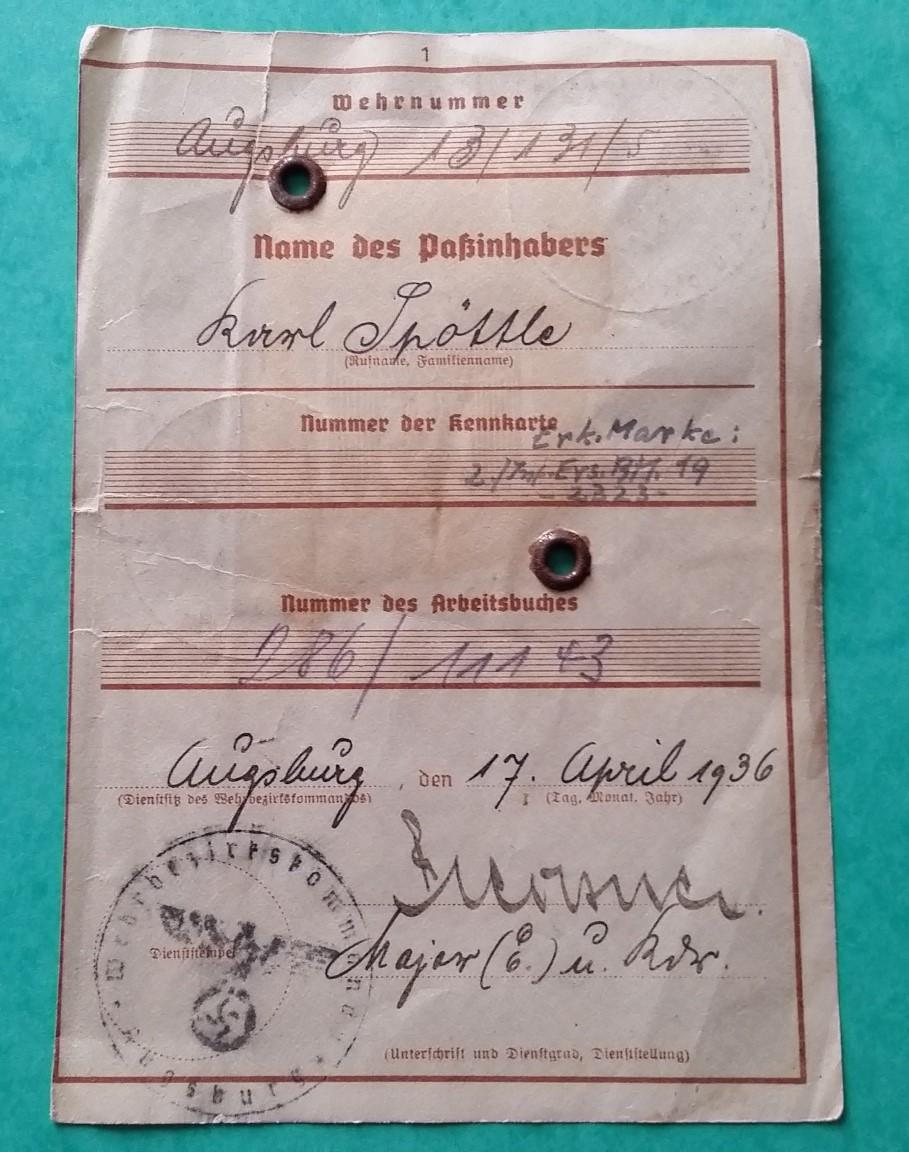 1
Wehrnummer
Augsburg 13/131/5
Name des Paßinhabers
Karl Spöttle
(Rufname, Familienname)
Nummer der Kennkarte
Erk. Marke:
2./Inf. Ers. Btl. 19
- 2323 -
Nummer des Arbeitsbuches
286/ 111 43
Augsburg, den 17. April 1936
(Dienstsitz des Wehrbezirkskommandos) (Tag, Monat, Jahr)
Wehrbezirkskommando
Augsburg
Dienststempel
Major (E.) u. Kdr.
(Unterschrift und Dienstgrad, Dienststellung)